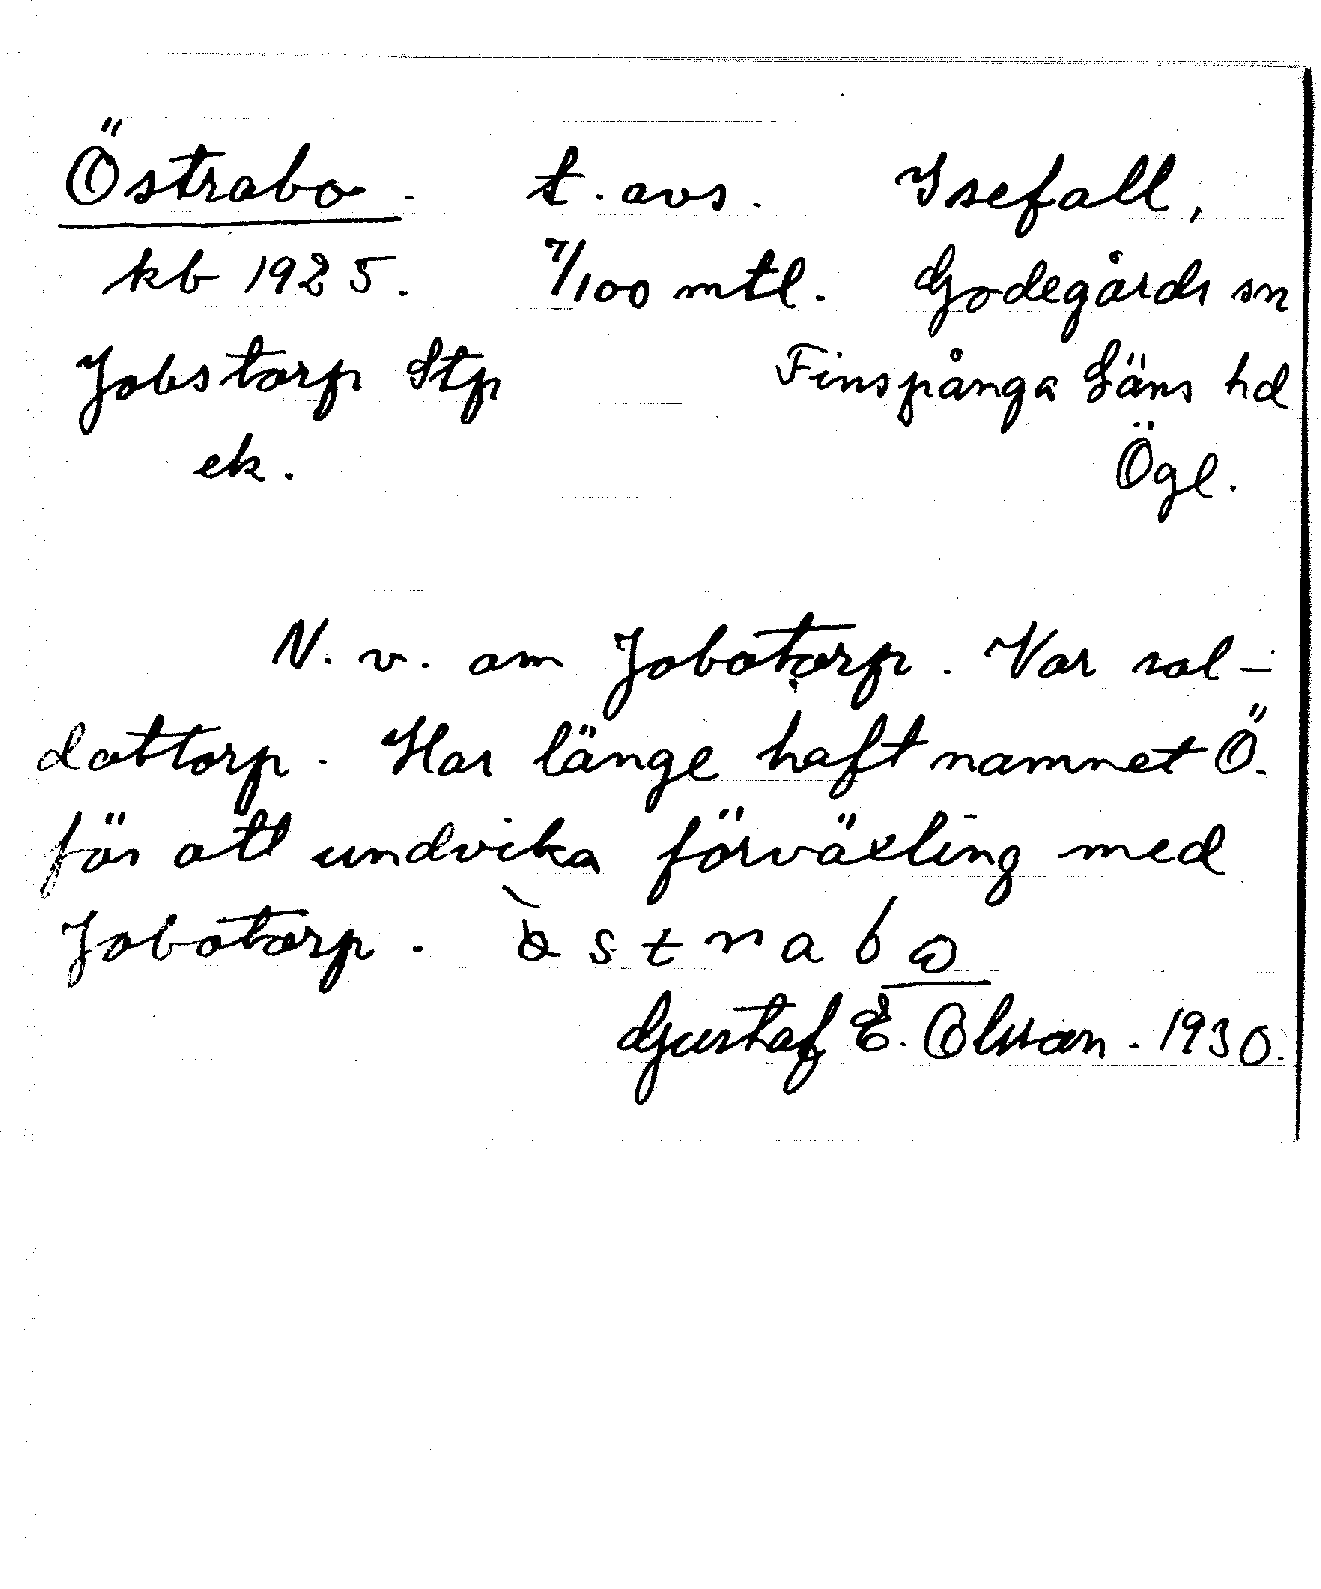 Östrabo. t. avs. Isefall,
kb 1925. 7/100 mtl. Godegårds sn
Jobstorp Stp Finspånga Läns hd
ek. Ögl.
N. v. om Jobstorp. Var sol-
dattorp. Har länge haft namnet Ö.
för att undvika förväxling med
Jobstorp.
Gustaf E. Olsson. 1930.